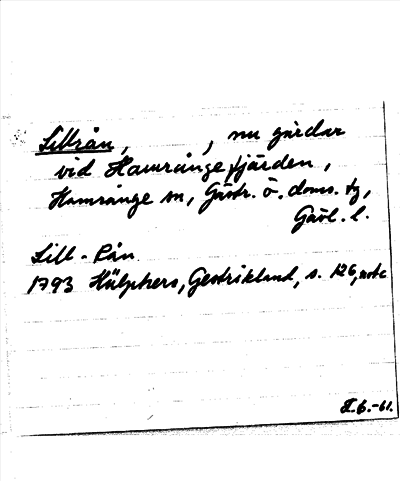 Lillrån, , nu gårdar
vid Hamrångefjärden,
Hamrånge sn, Gästr. ö. doms. tg,
Gävl. l.
Lill-Rån
1793 Hülphers, Gestrikland, s. 126, not c
I.B.-61.